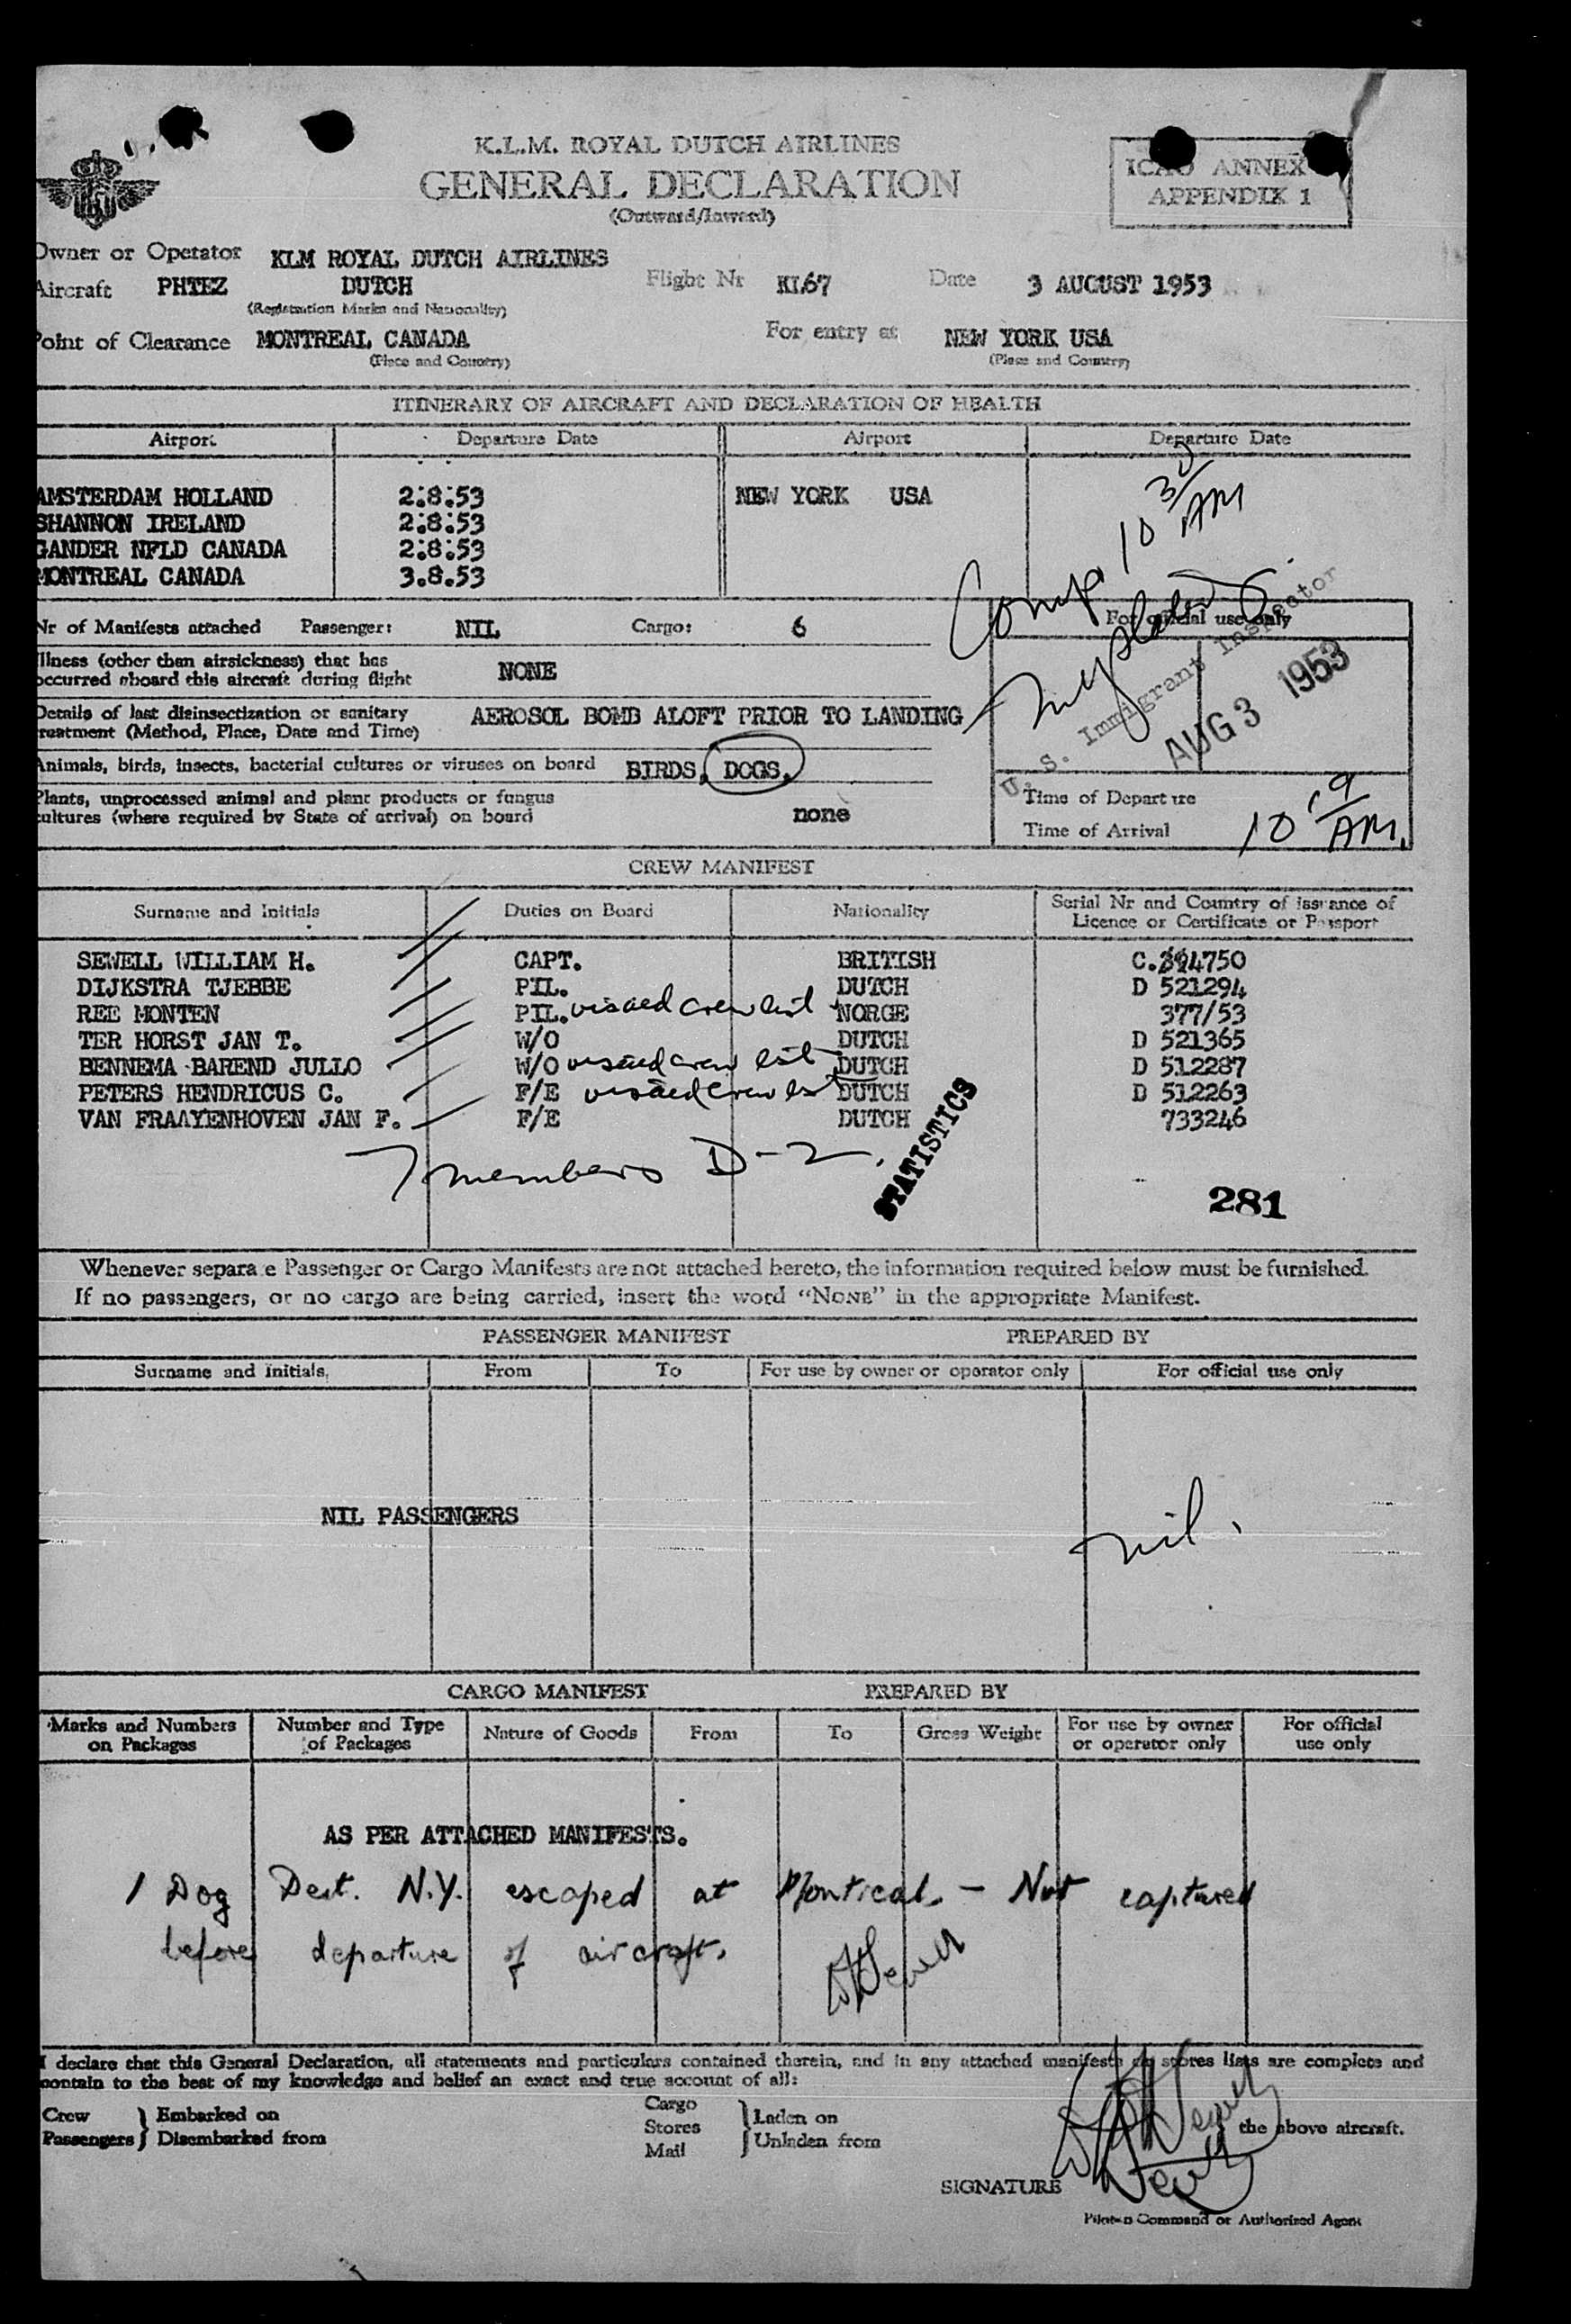 K.L.M. ROYAL DUTCH AIRLINES
GENERAL DECLARATION
(Outward/Inward)
ICAO ANNEX
APPENDIX 1
Owner or Operator KLM ROYAL DUTCH AIRLINES
Aircraft PHTEZ DUTCH Flight Nr KL67 Date 3 AUGUST 1953
(Registration Marks and Nationality)
Point of Clearance MONTREAL CANADA For entry at NEW YORK USA
(Place and Country) (Place and Country)
ITINERARY OF AIRCRAFT AND DECLARATION OF HEALTH
Airport Departure Date Airport Departure Date
AMSTERDAM HOLLAND 2:8:53 NEW YORK USA
SHANNON IRELAND 2:8:53
GANDER NFLD CANADA 2:8:53
MONTREAL CANADA 3.8.53
Comp. 10 30 AM
Nr of Manifests attached Passenger: NIL Cargo: 6
For official use only
Illness (other than airsickness) that has
occurred aboard this aircraft during flight NONE
U. S. Immigrant Inspector
AUG 3 1953
Details of last disinsectization or sanitary
treatment (Method, Place, Date and Time) AEROSOL BOMB ALOFT PRIOR TO LANDING
Animals, birds, insects, bacterial cultures or viruses on board BIRDS, DOGS,
Plants, unprocessed animal and plant products or fungus
cultures (where required by State of arrival) on board none
Time of Departure
Time of Arrival 10 19 AM.
CREW MANIFEST
Surname and Initials Duties on Board Nationality Serial Nr and Country of issuance of
Licence or Certificate or Passport
SEWELL WILLIAM H. CAPT. BRITISH C. 4750
DIJKSTRA TJEBBE PIL. DUTCH D 521294
REE MONTEN PIL. visaed crew list NORGE 377/53
TER HORST JAN T. W/O DUTCH D 521365
BENNEMA BAREND JULLO W/O visaed crew list DUTCH D 512287
PETERS HENDRICUS C. F/E visaed crew list DUTCH D 512263
VAN FRAAYENHOVEN JAN F. F/E DUTCH 733246
7 members D-2.
STATISTICS
281
Whenever separate Passenger or Cargo Manifests are not attached hereto, the information required below must be furnished.
If no passengers, or no cargo are being carried, insert the word "NONE" in the appropriate Manifest.
PASSENGER MANIFEST PREPARED BY
Surname and Initials, From To For use by owner or operator only For official use only
NIL PASSENGERS
nil.
CARGO MANIFEST PREPARED BY
Marks and Numbers on Packages Number and Type of Packages Nature of Goods From To Gross Weight For use by owner or operator only For official use only
AS PER ATTACHED MANIFESTS.
1 Dog Dest. N.Y. escaped at Montreal. - Not captured
before departure of aircraft.
WHSewell
I declare that this General Declaration, all statements and particulars contained therein, and in any attached manifests or stores lists are complete and
contain to the best of my knowledge and belief an exact and true account of all:
Crew Passengers } Embarked on Disembarked from
Cargo Stores Mail } Laden on Unladen from
the above aircraft.
SIGNATURE WHSewell
Pilot-in-Command or Authorized Agent